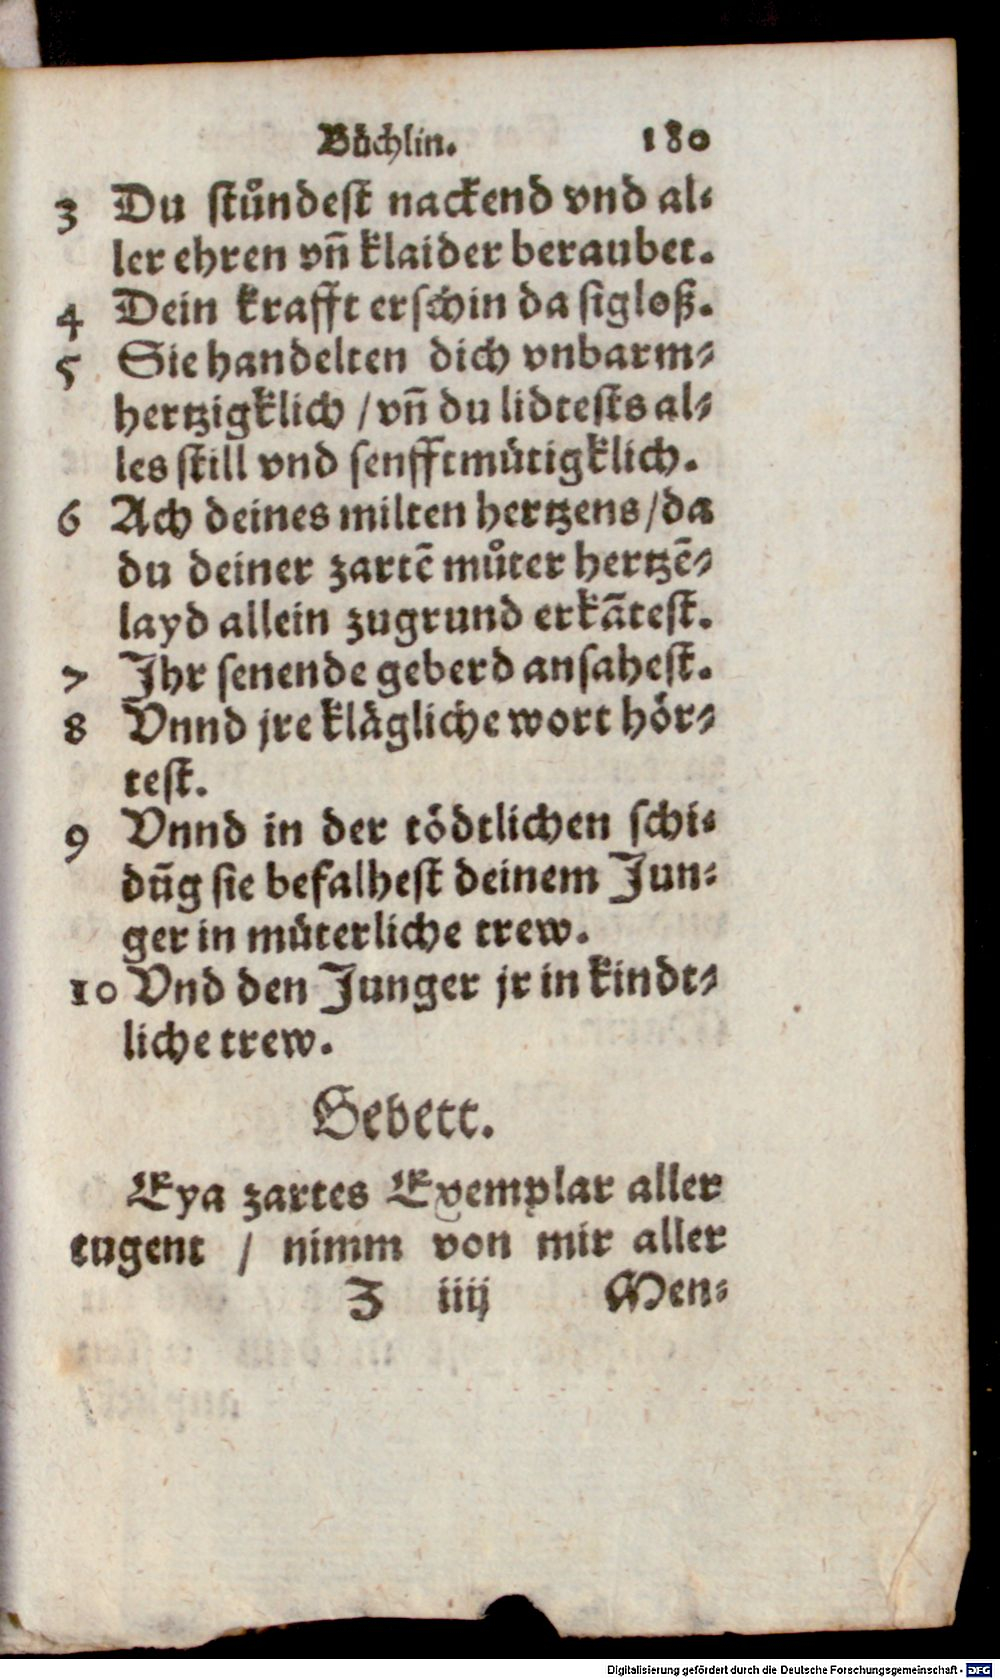 Bůchlin. 180
3 Du stůndest nackend vnd al-
ler ehren vñ klaider beraubet.
4 Dein krafft erschin da sigloß.
5 Sie handelten dich vnbarm-
hertzigklich / vñ du lidtests al-
les still vnd senfftmütigklich.
6 Ach deines milten hertzens / da
du deiner zartē můter hertzē-
layd allein zugrund erkātest.
7 Ihr senende geberd ansahest.
8 Vnnd jre klägliche wort hör-
test.
9 Vnnd in der tödtlichen schi-
dūg sie befalhest deinem Jun-
ger in müterliche trew.
10 Vnd den Junger jr in kindt-
liche trew.
Gebett.
Eya zartes Exemplar aller
tugent / nimm von mir aller
Z iiij Men-
Digitalisierung gefördert durch die Deutsche Forschungsgemeinschaft - DFG